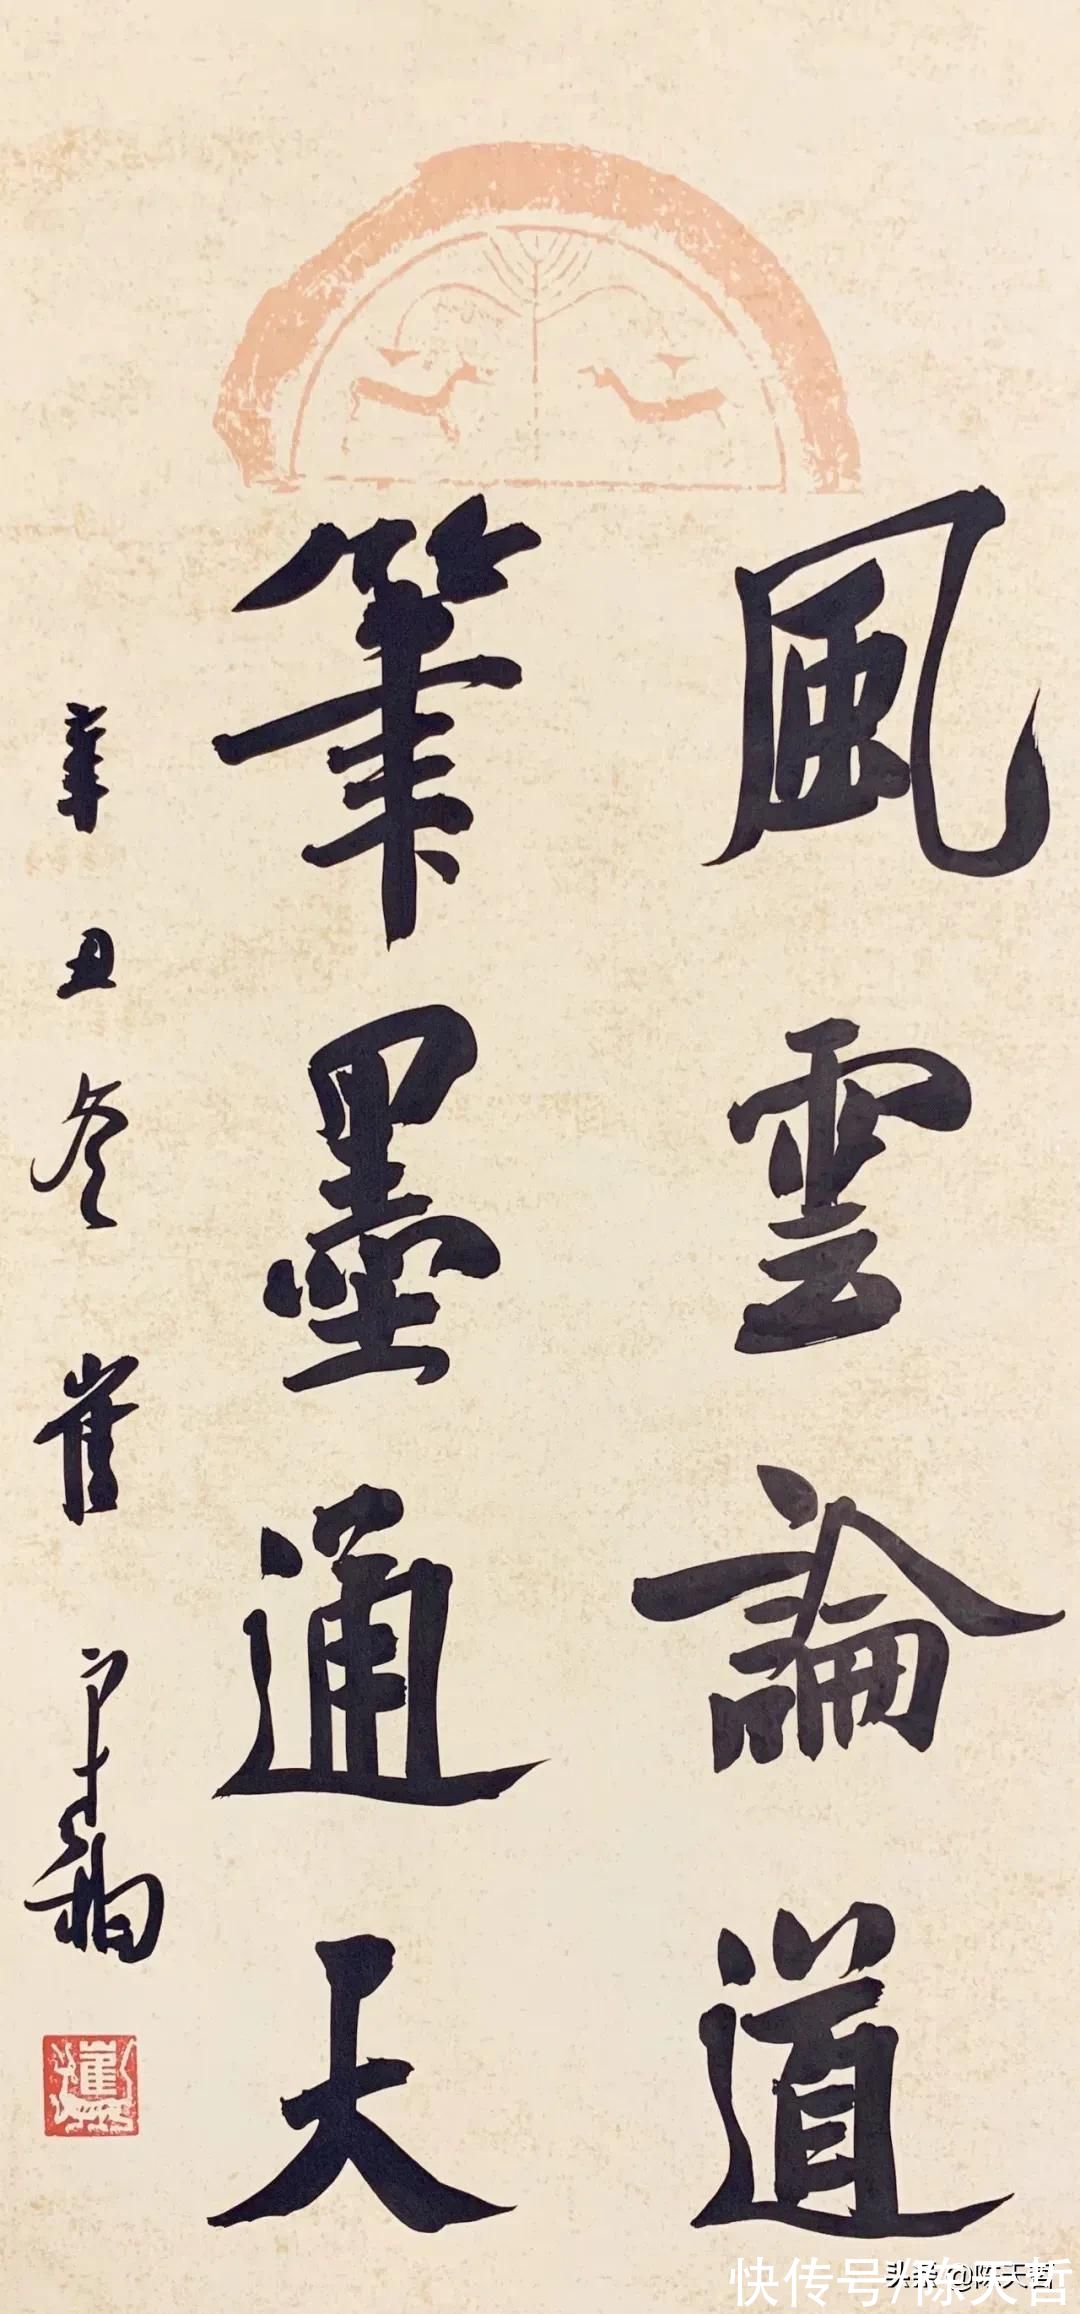 風雲論道
筆墨通天
辛丑冬崔寒柏
快传号/陈天哲
头条 @陈天哲